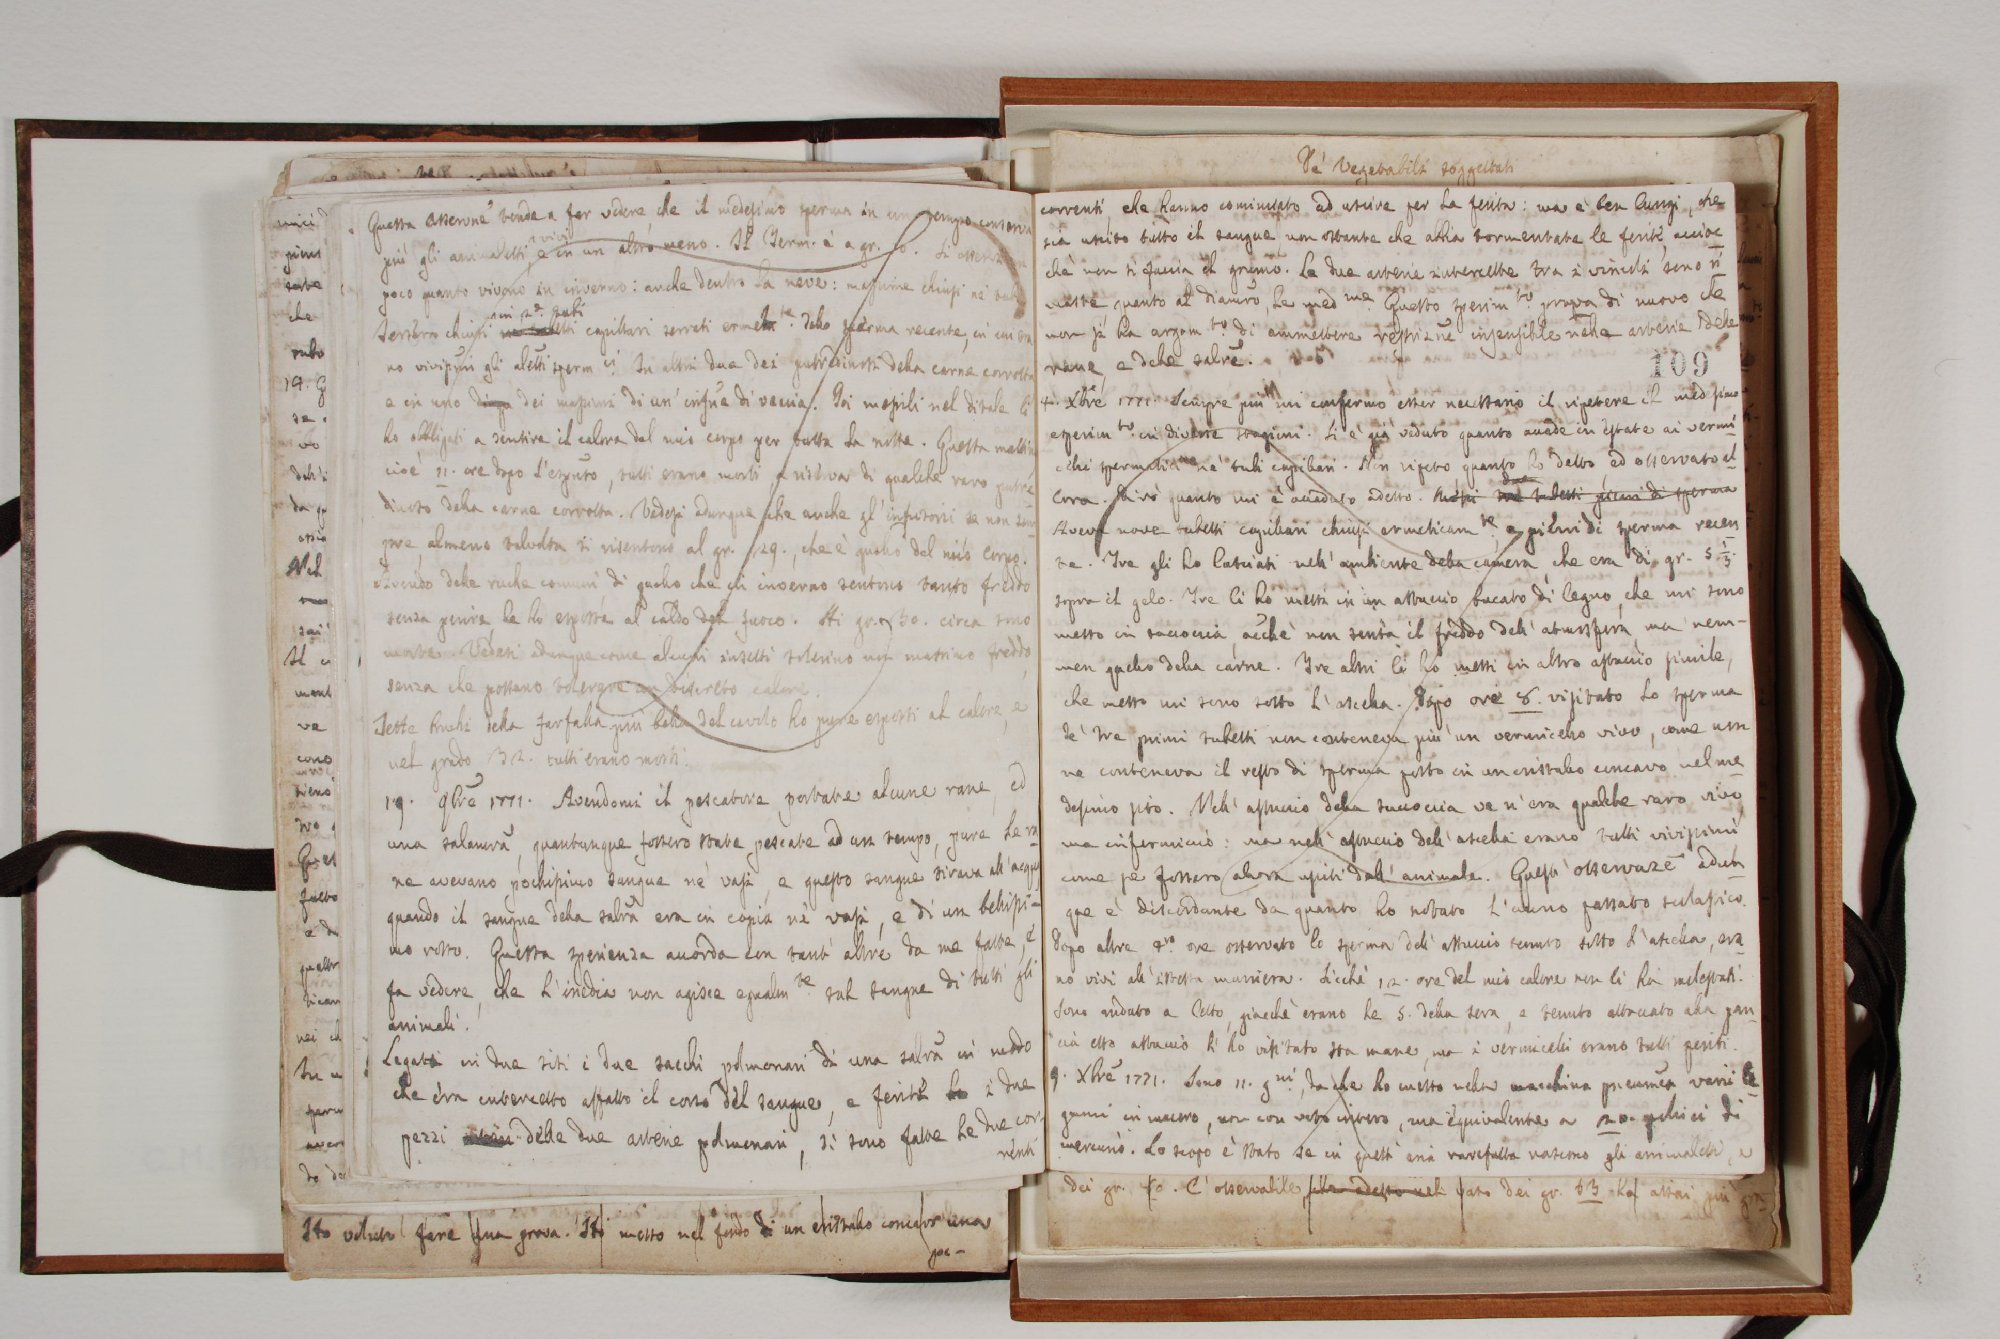 Questa osserne tende a far vedere che il medesimo sperma in un tempo conserva
più gli animaletti vivi e in un altro meno. Il Term. è a gr. 10. Si osservi
poco quanto vivono in inverno: anche dentro la neve: massime chiusi ne' tub
Iersera chiusi in 2 tubi capillari serrati ermete. dello sperma recente, in cui era
no vivissimi gli aletti sperm ci. In altri due dei putredinosi della carne corrotta
e in uno dei massimi di un' infusne di veccia. Poi messili nel ditale li
ho obbligati a sentire il calore del mio corpo per tutta la notte. Questa mattina
cioè 11. ore dopo l'esposto, tutti erano morti a riserva di qualche raro putre
dinoso della carne corrotta. Vedesi adunque che anche gl'infusorii se non sem
pre, almeno talvolta si risentono al gr. 29., che è quello del mio corpo.
Avendo delle ruche comuni di quelle che in inverno sentono tanto freddo
senza perire le ho esposte al caldo del fuoco. Ai gr. 30. circa sono
morte. Vedesi adunque come alcuni insetti tolerino un massimo freddo
senza che possano tolerare un discreto calore.
Sette bruchi della farfalla più bella del cavolo ho pure esposti al calore, e
nel grado 32. tutti erano morti.
19. 9bre 1771. Avendomi il pescatore portate alcune rane, ed
una salamra, quantunque fossero state pescate ad un tempo, pure le ra
ne avevano pochissimo sangue ne' vasi, e questo sangue tirava all'acque
quando il sangue della salra era in copia ne' vasi, e di un bellissi-
mo rosso. Questa sperienza accorda con tant' altre da me fatte, e
fa vedere, che l'inedia non agisce egualm te sul sangue di tutti gli
animali.
Legati in due siti i due sacchi polmonari di una salra in modo
che era intercetto affatto il corso del sangue, e feriti i due
pezzi delle due arterie polmonari, si sono fatte le due cor
renti
Ho voluto fare una prova. Ho messo nel fondo di un cristallo concavo una
po-
De' Vegetabili soggettati
correnti, che hanno cominciato ad uscire per la ferita: ma è ben lungi, che
sia uscito tutto il sangue, non ostante che abbia tormentate le ferite, accioc
chè non si faccia il grumo. Le due arterie intercette tra i vincoli sono ri
maste, quanto al diametro, le med me. Questo sperim to. prova di nuovo che
non si ha argom to. di ammettere restrizne insensibile nelle arterie delle
rane, e delle salre.
109
Xbre 1771. Sempre più mi confermo esser necessario il ripetere il medesimo
esperim to. in diverse stagioni. Si è già veduto quanto accade in estate ai vermi
celli spermatici ne' tubi capillari. Non ripeto quanto ho detto, ed osservato al
lora. Dirò quanto mi è accaduto adesso.
Aveva nove tubetti capillari chiusi ermeticam te, e pieni di sperma recen
te. Tre gli ho lasciati nell'ambiente della camera, che era di gr. 5 1/3
sopra il gelo. Tre li ho messi in un astuccio bucato di legno, che mi sono
messo in saccoccia acchè non senta il freddo dell'atmosfera, ma nem-
men quello della carne. Tre altri li ho messi in altro astuccio simile,
che messo mi sono sotto l'ascella. Dopo ore 8. visitato lo sperma
de' tre primi tubetti non conteneva più un vermicello vivo, come non
ne conteneva il resto di sperma posto in un cristallo concavo nel me
desimo sito. Nell'astuccio della saccoccia ve n'era qualche raro vivo,
ma infermiccio: ma nell'astuccio dell'ascella erano tutti vivissimi,
come se fossero allora usciti dall'animale. Questa osservaze adun
que è discordante da quanto ho notato l'anno passato
Dopo altre 4ro. ore osservato lo sperma dell'astuccio tenuto sotto l'ascella, era
no vivi all'istessa maniera. Sicchè 12. ore del mio calore non li ha molestati.
Sono andato a letto, giacchè erano le 5. della sera, e tenuto attaccato alla pan
cia esso astuccio l'ho visitato sta mane, ma i vermicelli erano tutti periti.
9. Xbre 1771. Sono 11. gni, da che ho messo nella macchina pneumca varii le
gumi in macero, non con voto intero, ma equivalente a 20. pollici di
mercurio. Lo scopo è stato se in quest'aria rarefatta nascono gli animaletti, e
dei gr. 40. È osservabile nel vaso dei gr. 63 ha assai più